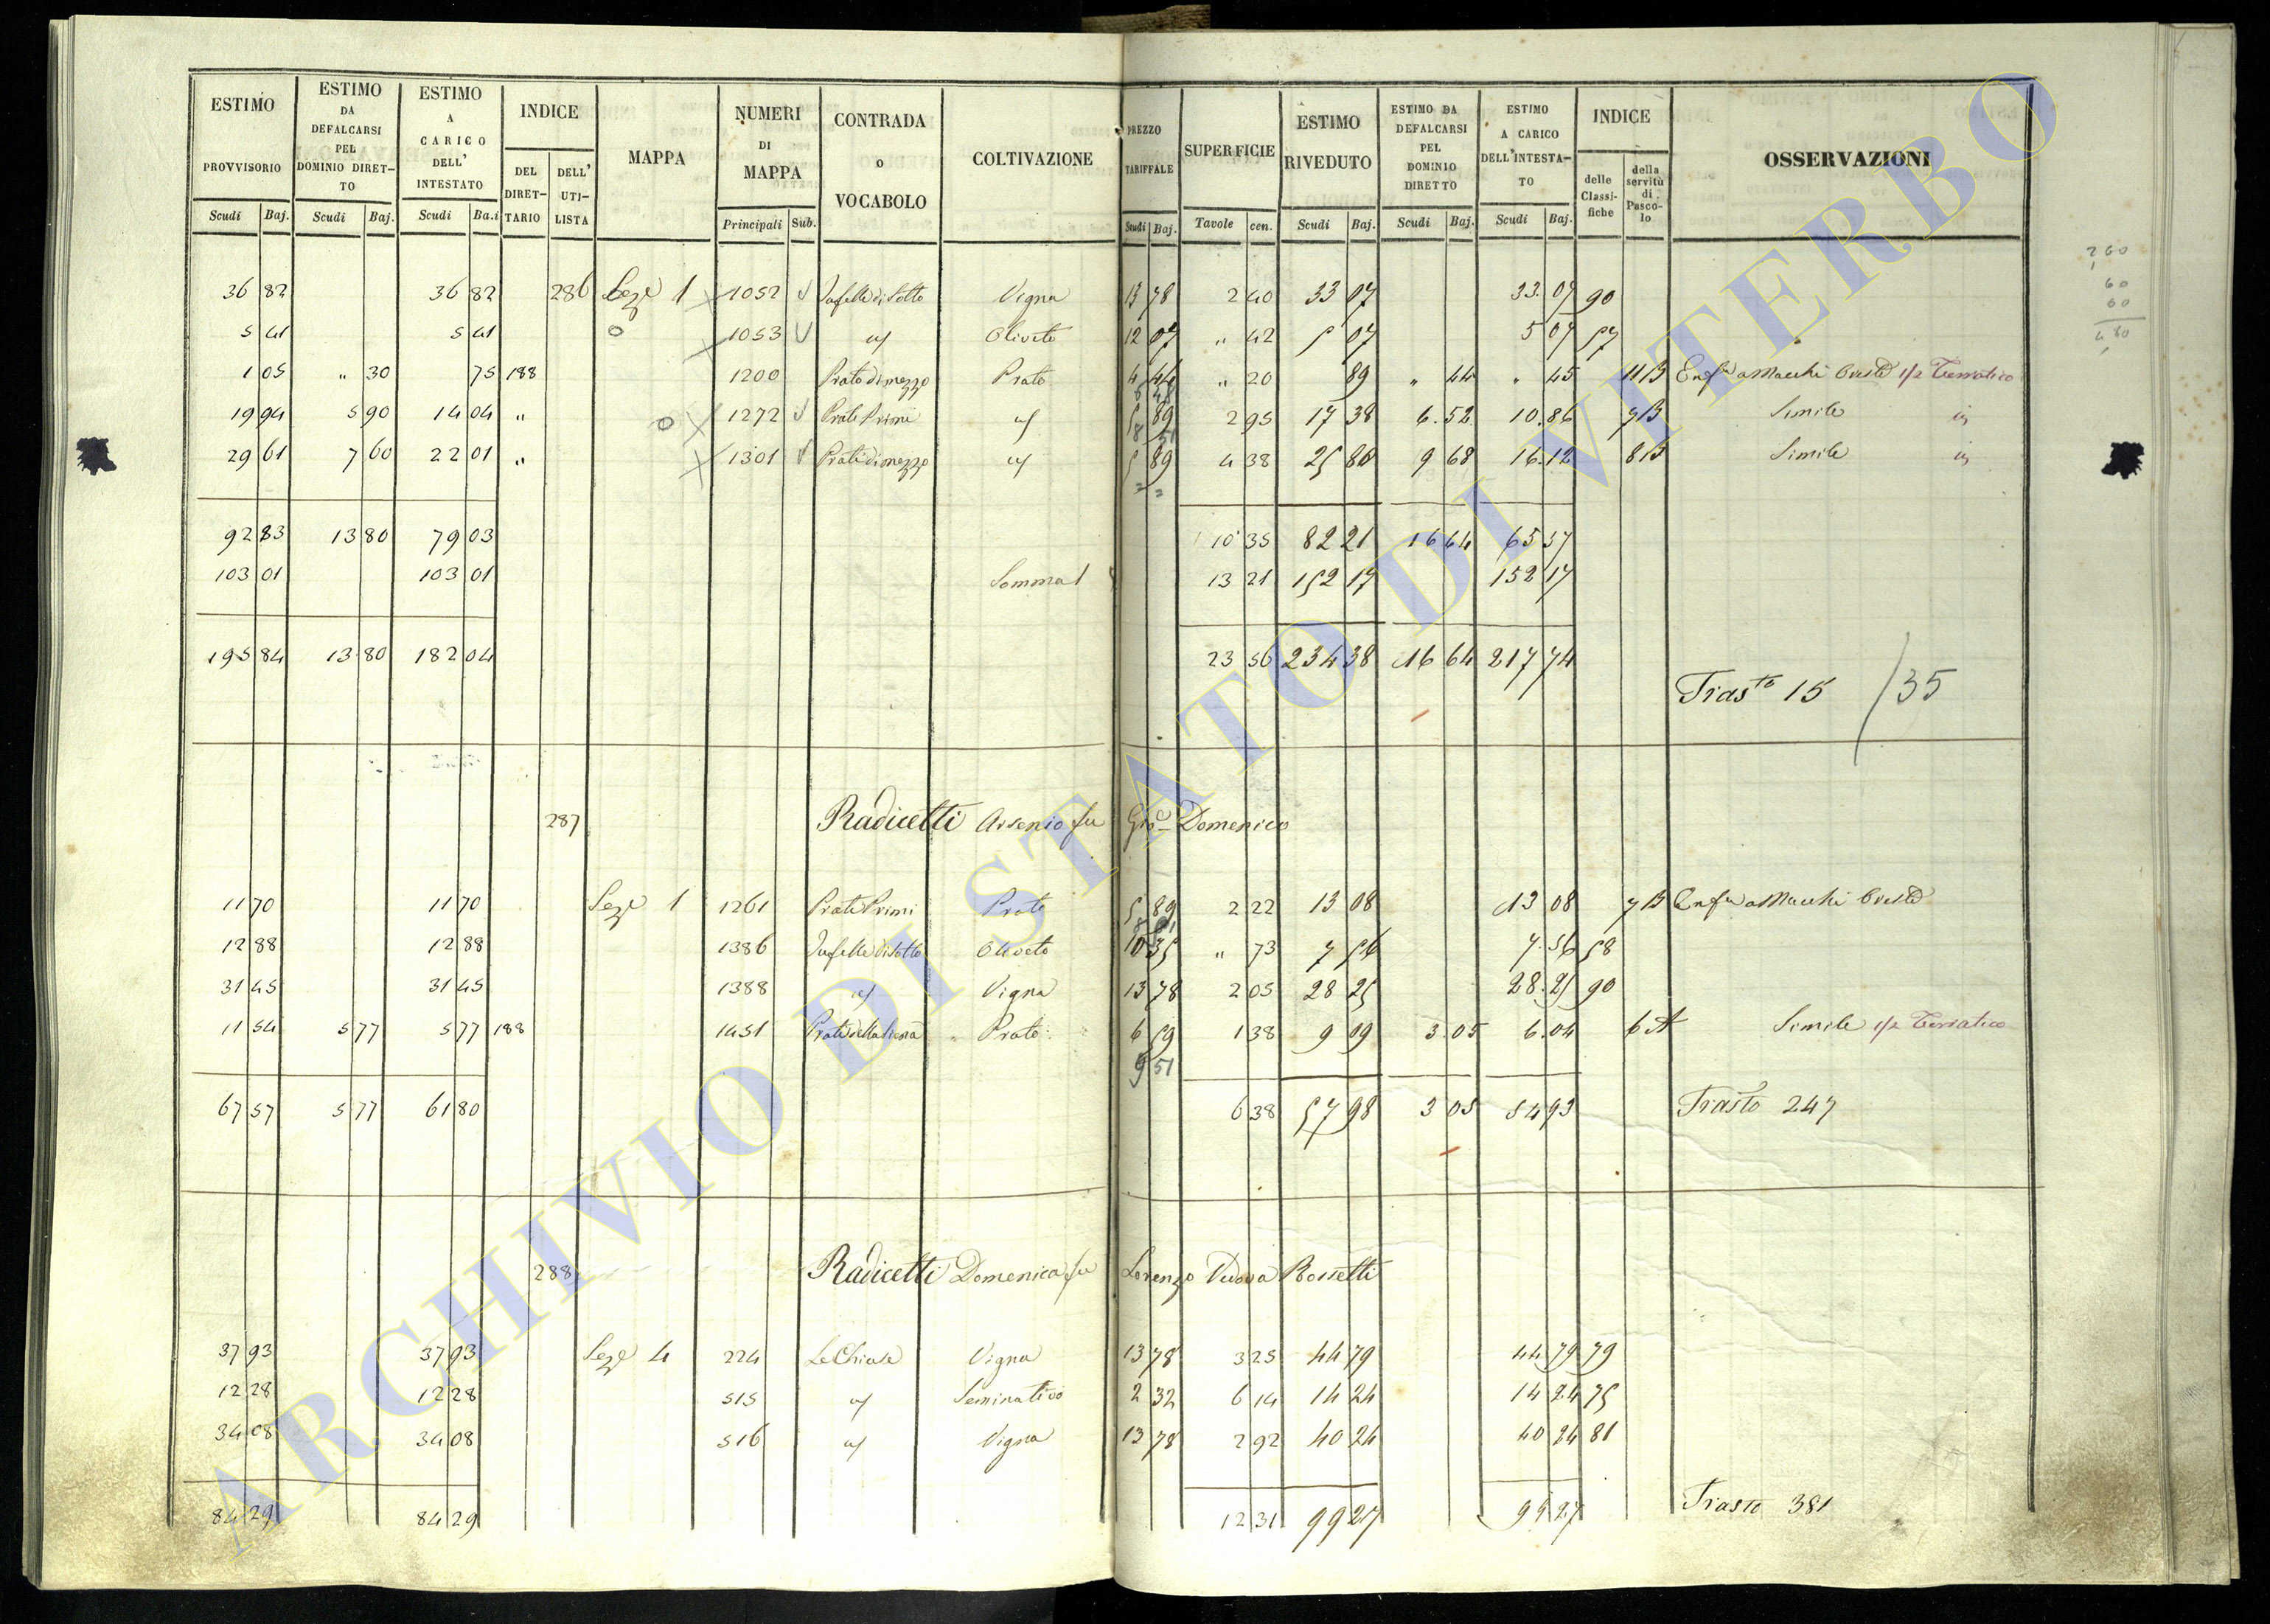 ESTIMO PROVVISORIO | ESTIMO DA DEFALCARSI PEL DOMINIO DIRETTO | ESTIMO A CARICO DELL' INTESTATO | INDICE | MAPPA | NUMERI DI MAPPA | CONTRADA O VOCABOLO | COLTIVAZIONE | PREZZO TARIFFALE | SUPERFICIE | ESTIMO RIVEDUTO | ESTIMO DA DEFALCARSI PEL DOMINIO DIRETTO | ESTIMO A CARICO DELL'INTESTATO | INDICE | OSSERVAZIONI
DEL DIRETTARIO | DELL' UTILISTA | delle Classifiche | della servitù di Pascolo
Scudi Baj. | Scudi Baj. | Scudi Ba.i | Principali Sub. | Scudi Baj. | Tavole cen. | Scudi Baj. | Scudi Baj. | Scudi Baj.
36 82 | 36 82 | 286 | Seze 1 | 1052 | di Sotto | Vigna | 13 78 | 2 40 | 33 07 | 33. 07 | 90
5 41 | 5 41 | 1053 | Oliveto | 12 07 | " 42 | 5 07 | 5 07 | 57
1 05 | " 30 | 75 | 188 | 1200 | Prato di mezzo | Prato | 4 44 | " 20 | 89 | " 44 | " 45 | 11 B | a Macchi 1/2
19 94 | 5 90 | 14 04 | " | 1272 | Prati Primi | 5 89 | 2 95 | 17 38 | 6. 52 | 10. 86 | 7 B | Simile
29 61 | 7 60 | 22 01 | " | 1301 | Prati di mezzo | 5 89 | 4 38 | 25 80 | 9 68 | 16. 12 | 8 B | Simile
92 83 | 13 80 | 79 03 | 10 35 | 82 21 | 16 64 | 65 57
103 01 | 103 01 | Somma | 13 21 | 152 17 | 152 17
195 84 | 13 80 | 182 04 | 23 56 | 234 38 | 16 64 | 217 74
Trasto 15 / 35
287 | Radicetti Arsenio fu Gio Domenico
11 70 | 11 70 | Seze 1 | 1261 | Prati Primi | Prato | 5 89 | 2 22 | 13 08 | 13 08 | 7 B | a Macchi
12 88 | 12 88 | 1386 | di Sotto | Oliveto | 10 35 | " 73 | 7 56 | 7. 56 | 58
31 45 | 31 45 | 1388 | Vigna | 13 78 | 2 05 | 28 25 | 28. 25 | 90
11 54 | 5 77 | 5 77 | 188 | 1451 | Prato | 6 59 | 1 38 | 9 09 | 3. 05 | 6. 04 | 6 A | Simile 1/2
9 51
67 57 | 5 77 | 61 80 | 6 38 | 57 98 | 3 05 | 54 93 | Trasto 247
288 | Radicetti Domenica fu Lorenzo Vedova Rossetti
37 93 | 37 93 | Seze 4 | 224 | Le Chiuse | Vigna | 13 78 | 3 25 | 44 79 | 44 79 | 79
12 28 | 12 28 | 515 | Seminativo | 2 32 | 6 14 | 14 24 | 14 24 | 75
34 08 | 34 08 | 516 | Vigna | 13 78 | 2 92 | 40 24 | 40 24 | 81
84 29 | 84 29 | 12 31 | 99 27 | 99 27 | Trasto 381
260
60
60
4 80
ARCHIVIO DI STATO DI VITERBO